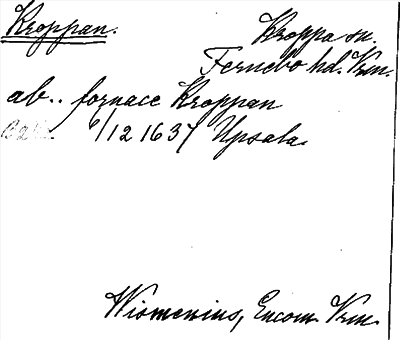 Kroppan.
Kroppa sn.
Fernebo hd. Vrm.
ab.. fornace Kroppan
6/12 1637 Upsala
Wismenius, Encom. Vrm.